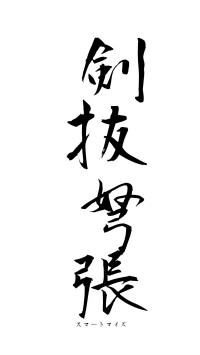 剣抜弩張
スマートマイズ